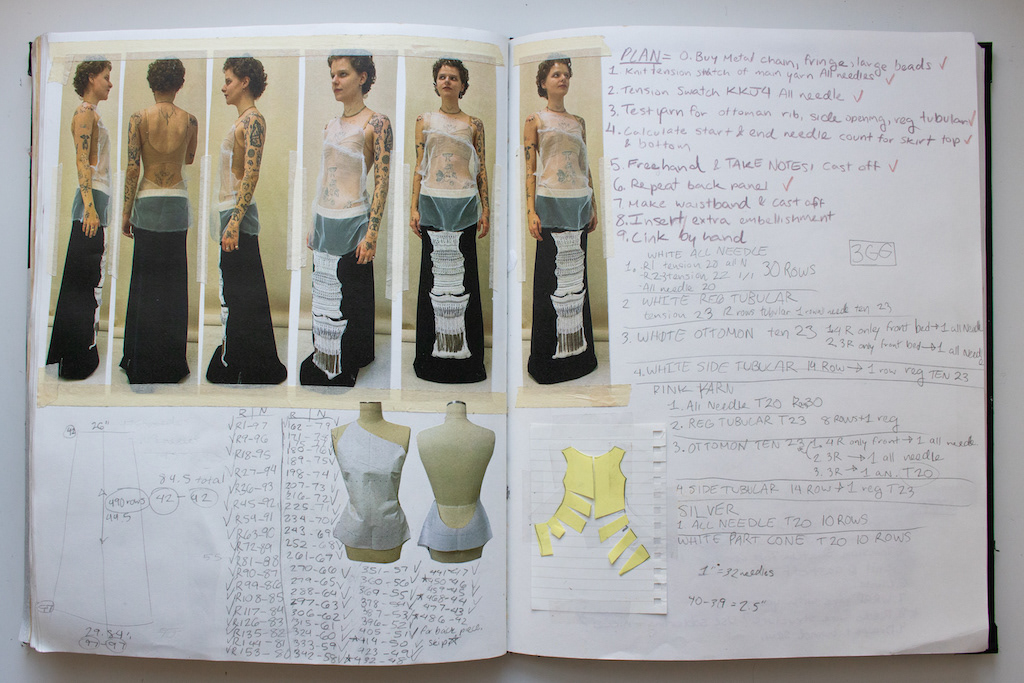 26"
84.5 total
490 rows
42 - 42
44.5
29.84"
97-97
R | N
R1-97
R9-96
R18-95
R27-94
R36-93
R45-92
R54-91
R63-90
R72-89
R81-88
R90-87
R99-86
R108-85
R117-84
R126-83
R135-82
R144-81
R153-80
R | N
162-79
180-76
189-75
198-74
207-73
216-72
225-71
234-70
243-69
252-68
261-67
270-66
279-65
288-64
297-63
306-62
315-61
324-60
333-59
342-58
351-57
360-56
369-55
378-54
387-53
396-52
405-51
414-50
423-49
432-48
441-47
450-46
468-44
477-43
486-42
for back piece
skip
PLAN= 0. Buy Metal chain, fringe, large beads ✓
1. Knit tension swatch of main yarn All needles ✓
2. Tension Swatch KKJ4 All needle ✓
3. Test yarn for ottoman rib, side opening, reg tubular ✓
4. Calculate start & end needle count for skirt top ✓
& bottom
5. Freehand & TAKE NOTES! Cast off ✓
6. Repeat back panel ✓
7. Make waistband & cast off
8. Insert extra embellishment
9. Link by hand
WHITE ALL NEEDLE
1. R1 tension 20 all N
R23 tension 22 1/1 30 ROWS
All needle 20
3GG
2 WHITE REG TUBULAR
tension 23 12 rows tubular 1 row needle ten 23
3. WHITE OTTOMON ten 23 1. 4 R only front bed → 1 all Needle
2. 3R only front bed → 1 all Needle
4. WHITE SIDE TUBULAR 14 ROW → 1 row reg TEN 23
PINK YARN
1. All Needle T20 R→30
2. REG TUBULAR T23 8 rows + 1 reg
3. OTTOMON TEN 23 1. 4R only front → 1 all needle
2. 3R → 1 all needle
3. 3R → 1 an. T20
4 SIDE TUBULAR 14 ROW → 1 reg T23
SILVER
1 ALL NEEDLE T20 10 ROWS
WHITE PART CONE T20 10 ROWS
1" = 32 needles
40-39 = 2.5"